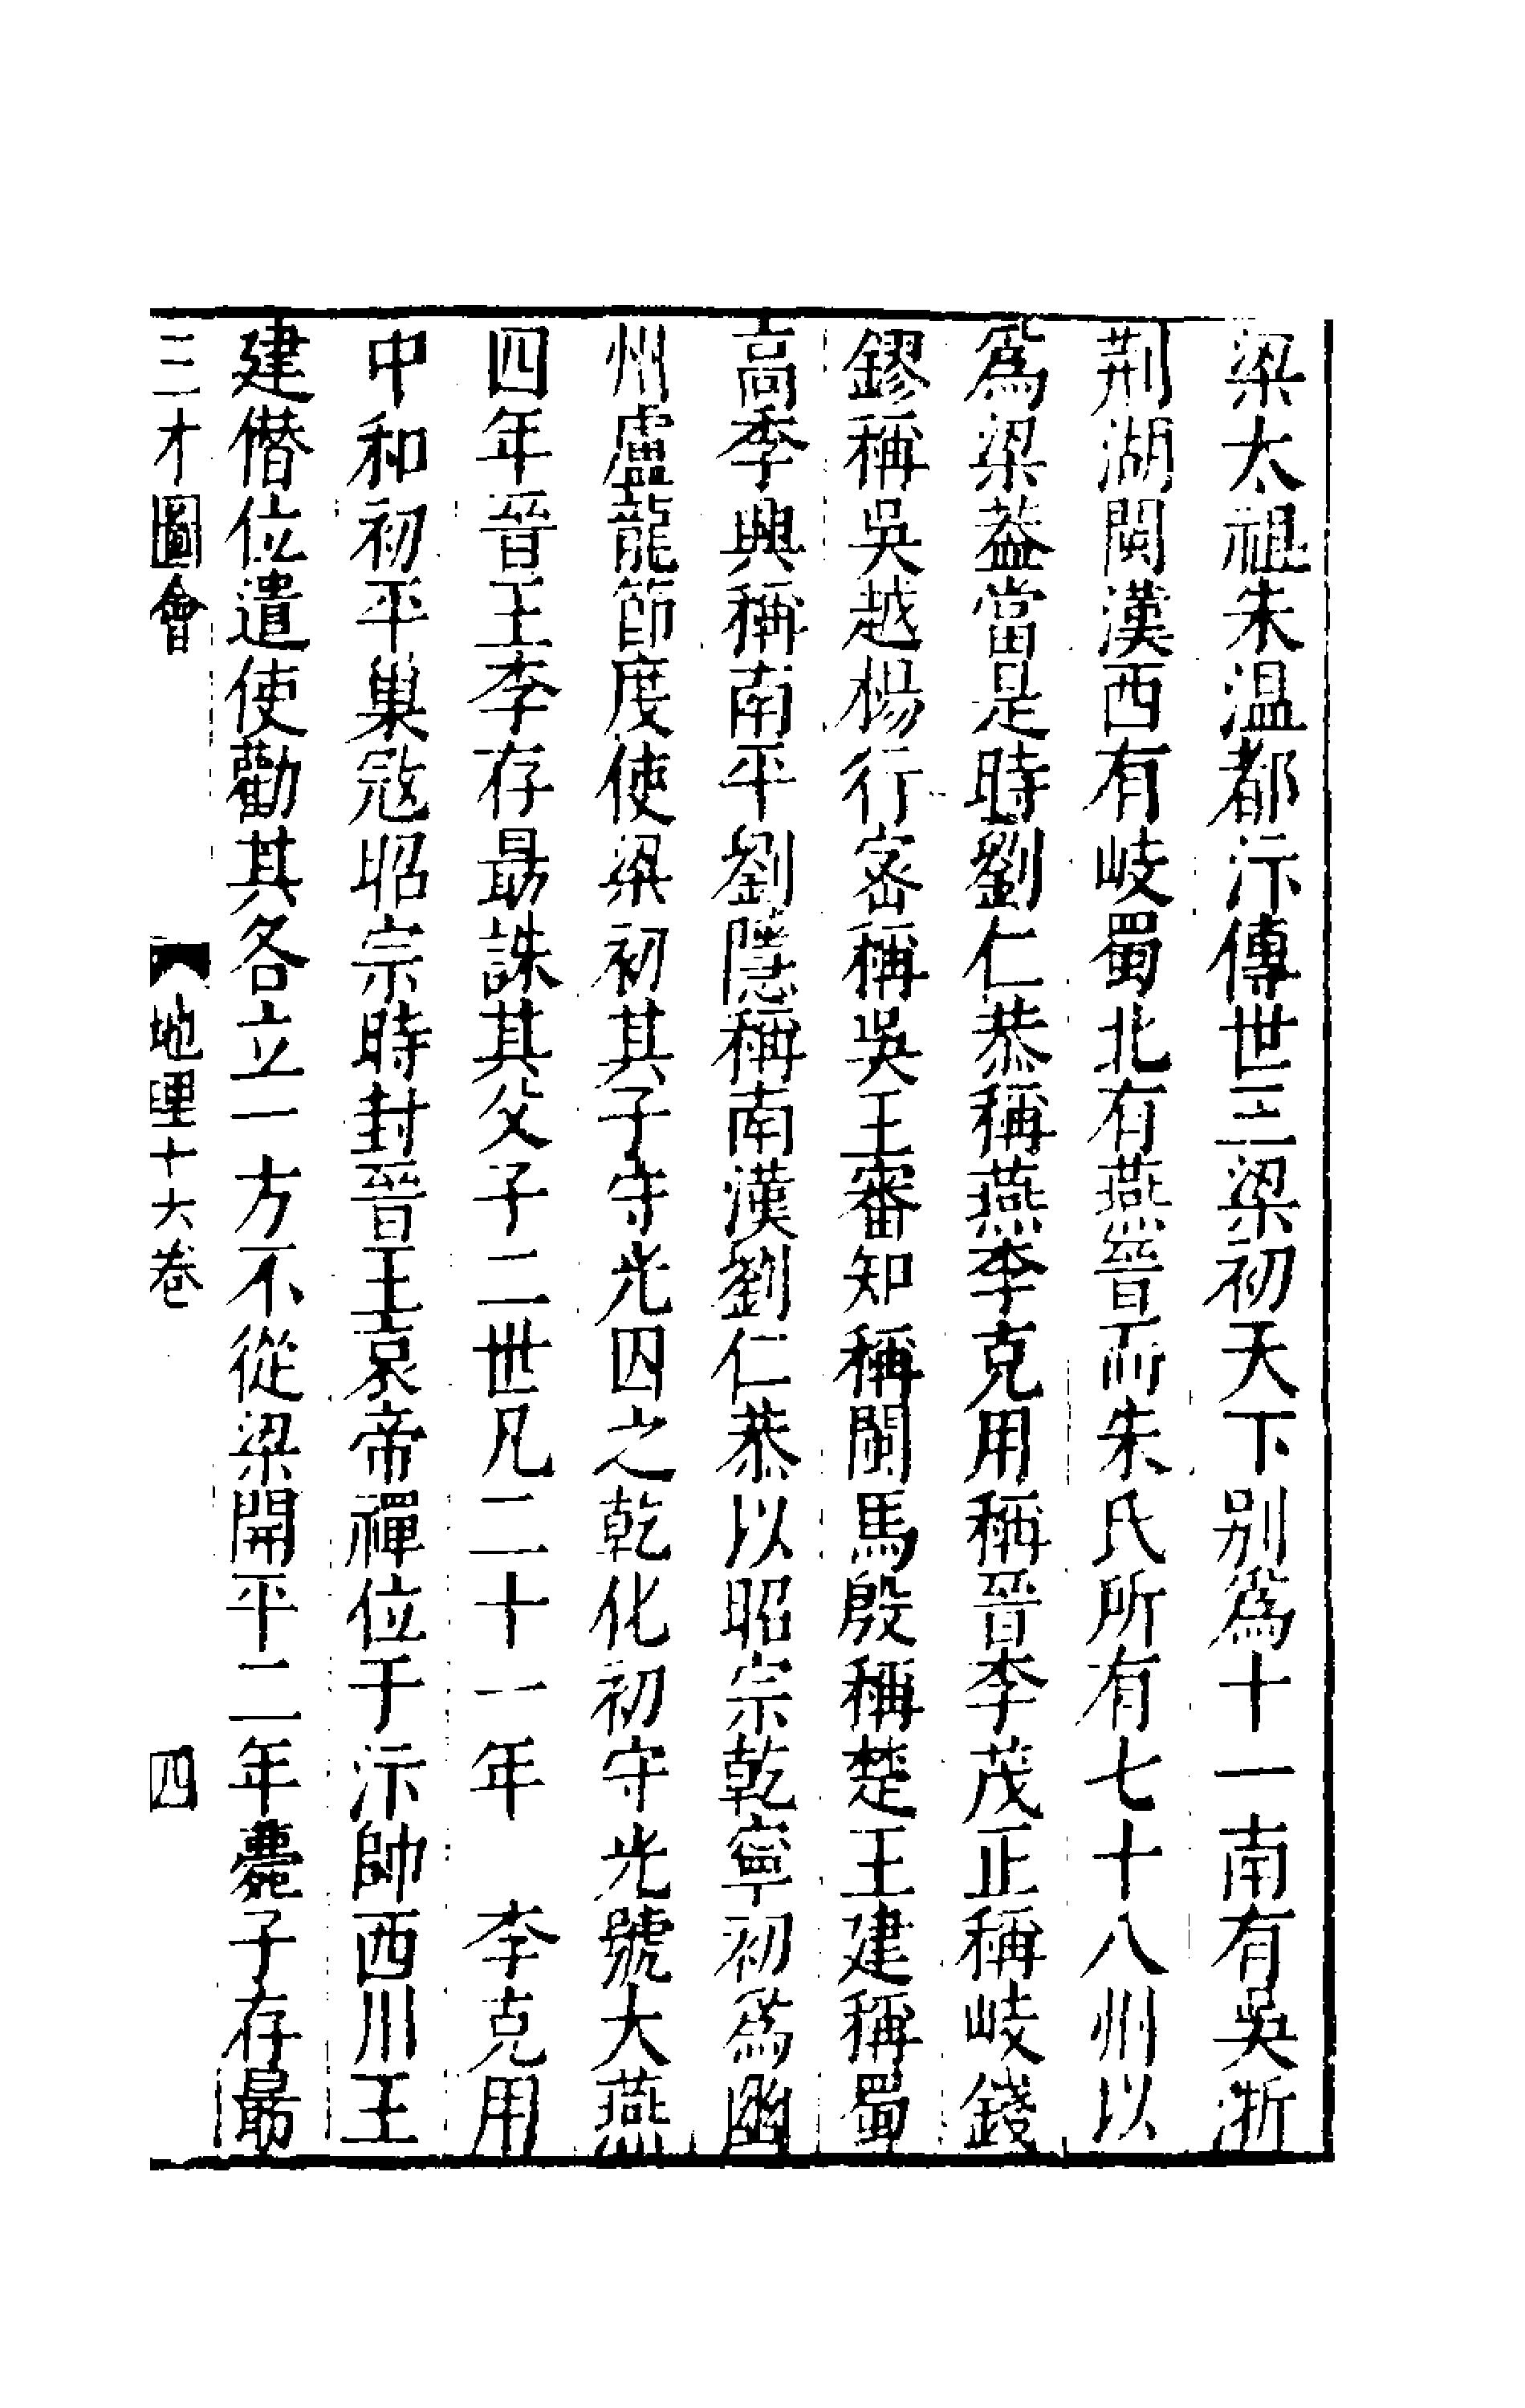 梁太祖朱温都汴傳世三梁初天下别爲十一南有吳浙
荆湖閩漢西有岐蜀北有燕晉而朱氏所有七十八州以
爲梁葢當是時劉仁恭稱燕李克用稱晉李茂正稱岐錢
鏐稱吳越楊行密稱吳王審知稱閩馬殷稱楚王建稱蜀
高季興稱南平劉隱稱南漢劉仁恭以昭宗乾寧初爲幽
州盧龍節度使梁初其子守光囚之乾化初守光號大燕
四年晉王李存勗誅其父子二世凡二十一年　李克用
中和初平巢寇昭宗時封晉王哀帝禪位于汴帥西川王
建僣位遣使勸其各立一方不從梁開平二年薨子存勗
三才圖會　地理十六卷　四